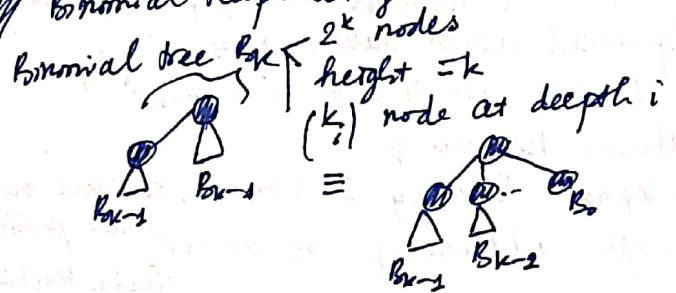 Binomial
Binomial tree Bk 2^k nodes
height = k
(k i) node at deepth i
Bk-1 Bk-1 ≡ Bk-1 Bk-2 ... B0